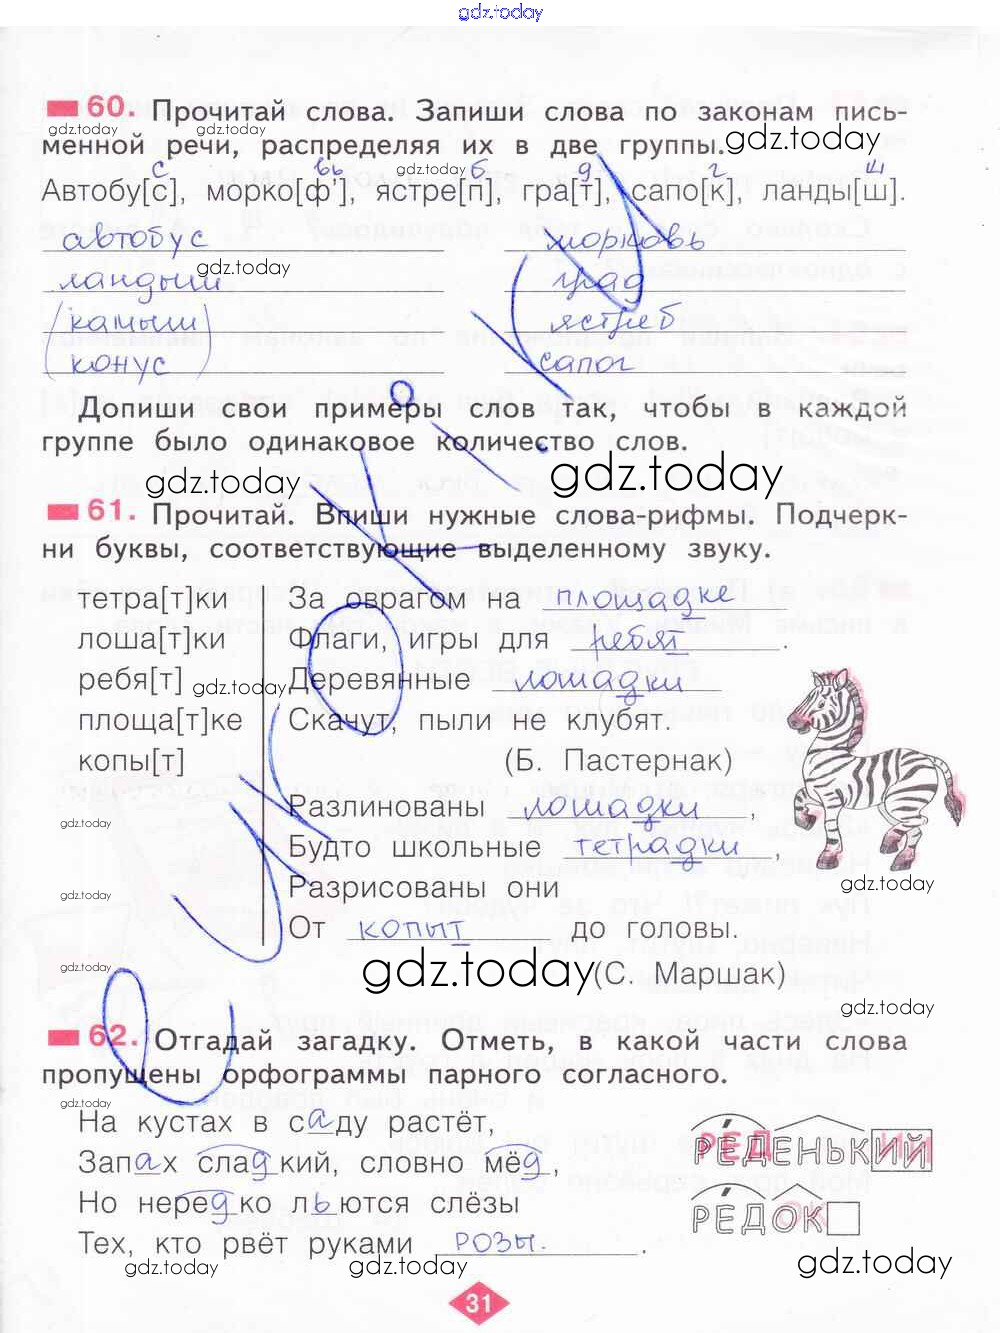 gdz.today
60. Прочитай слова. Запиши слова по законам пись-
gdz.today gdz.today gdz.today
менной речи, распределяя их в две группы.
с вь б д г ш
Автобу[с], морко[ф’], ястре[п], гра[т], сапо[к], ланды[ш].
автобус морковь
gdz.today
ландыш град
(камыш) ястреб
(конус) сапог
Допиши свои примеры слов так, чтобы в каждой
группе было одинаковое количество слов.
gdz.today gdz.today
61. Прочитай. Впиши нужные слова-рифмы. Подчерк-
ни буквы, соответствующие выделенному звуку.
тетра[т]ки За оврагом на площадке
лоша[т]ки Флаги, игры для ребят.
ребя[т] gdz.today Деревянные лошадки
площа[т]ке Скачут, пыли не клубят.
копы[т] (Б. Пастернак)
Разлинованы лошадки,
gdz.today
Будто школьные тетрадки,
gdz.today gdz.today
Разрисованы они
От копыт до головы.
gdz.today gdz.today (С. Маршак)
gdz.today
62. Отгадай загадку. Отметь, в какой части слова
пропущены орфограммы парного согласного.
gdz.today
На кустах в саду растёт,
Запах сладкий, словно мёд,
Но нередко льются слёзы
Тех, кто рвёт руками розы.
РЕДЕНЬКИЙ
РЕДОК
gdz.today gdz.today gdz.today
31